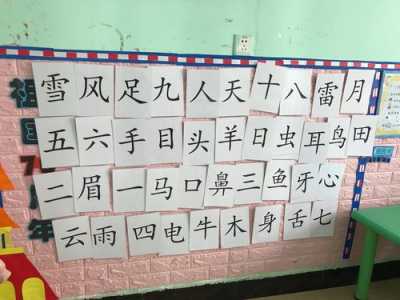 雪风足九人天十八雷月
五六手目头羊日虫耳鸟田
二眉一马口鼻三鱼牙心
云雨四电牛木身舌七
祖国
年